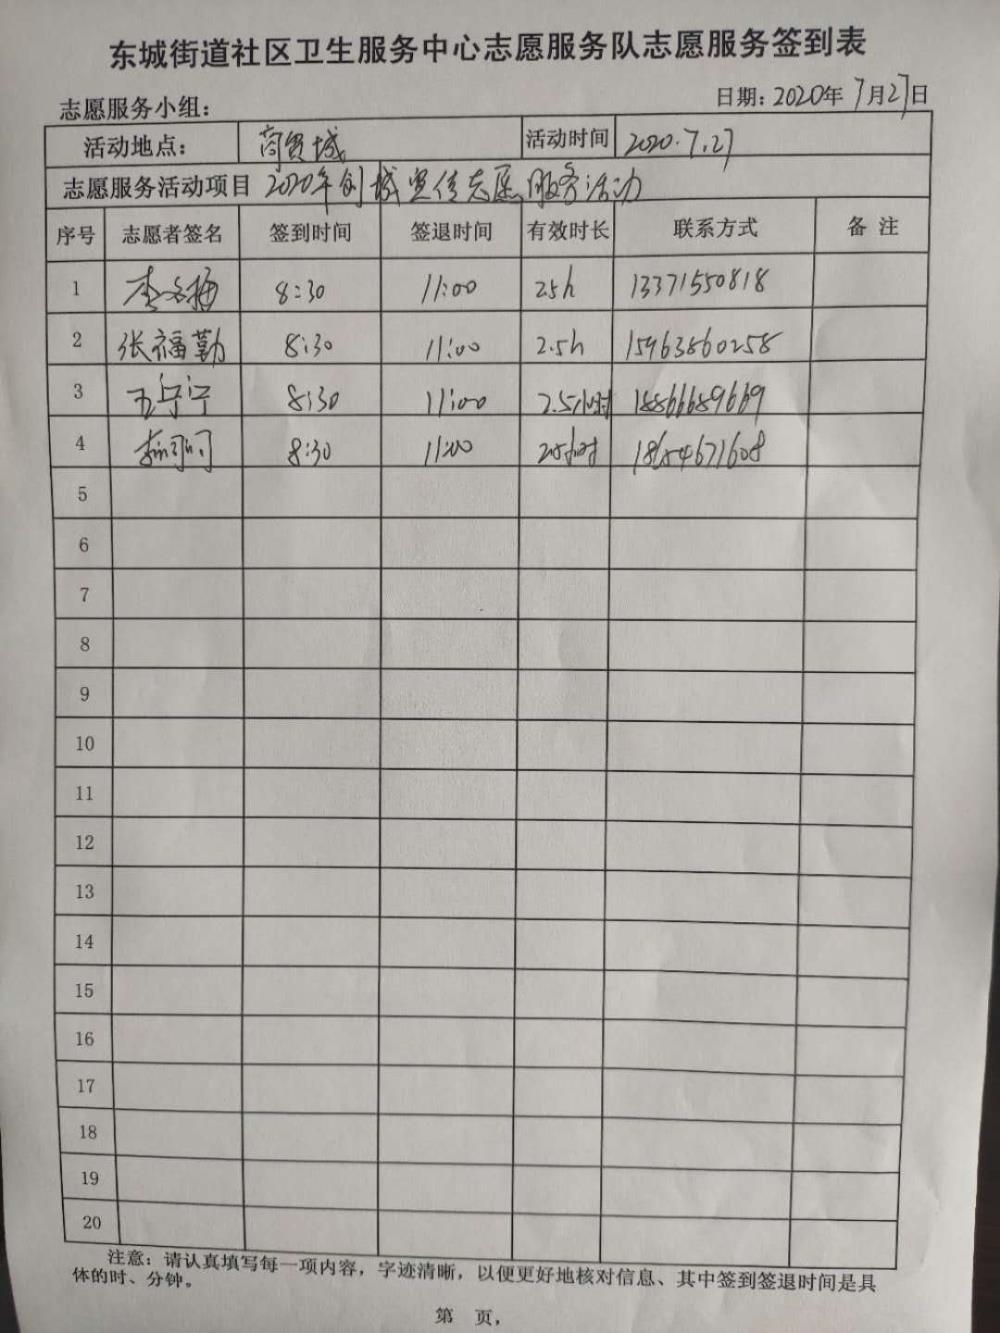 东城街道社区卫生服务中心志愿服务队志愿服务签到表
志愿服务小组： 日期：2020年 7月27日
活动地点： 商贸城 活动时间 2020.7.27
志愿服务活动项目 2020年创城宣传志愿服务活动
序号 志愿者签名 签到时间 签退时间 有效时长 联系方式 备 注
1 8:30 11:00 2.5h 13371550818
2 张福勤 8:30 11:00 2.5h 15963860258
3 王宁宁 8:30 11:00 2.5小时 18866689669
4 8:30 11:00 2.5小时 18654671608
5
6
7
8
9
10
11
12
13
14
15
16
17
18
19
20
注意：请认真填写每一项内容，字迹清晰，以便更好地核对信息、其中签到签退时间是具
体的时、分钟。
第 页，